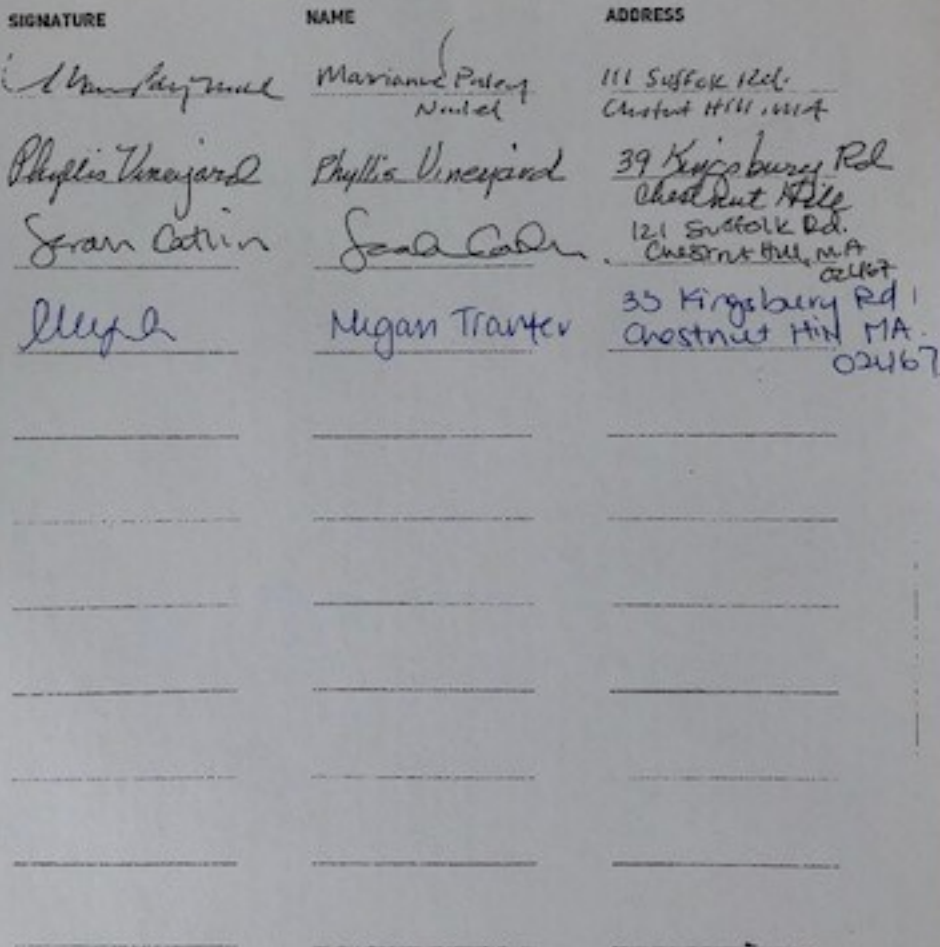 SIGNATURE NAME ADDRESS
Marianne 111 Suffolk Rd.
Chestnut Hill, MA
Phyllis Vineyard Phyllis Vineyard 39 Kingsbury Rd
Chestnut Hill
Sarah 121 Suffolk Rd.
Chestnut Hill, MA
02467
Megan Tranter 35 Kingsbury Rd
Chestnut Hill MA
02467